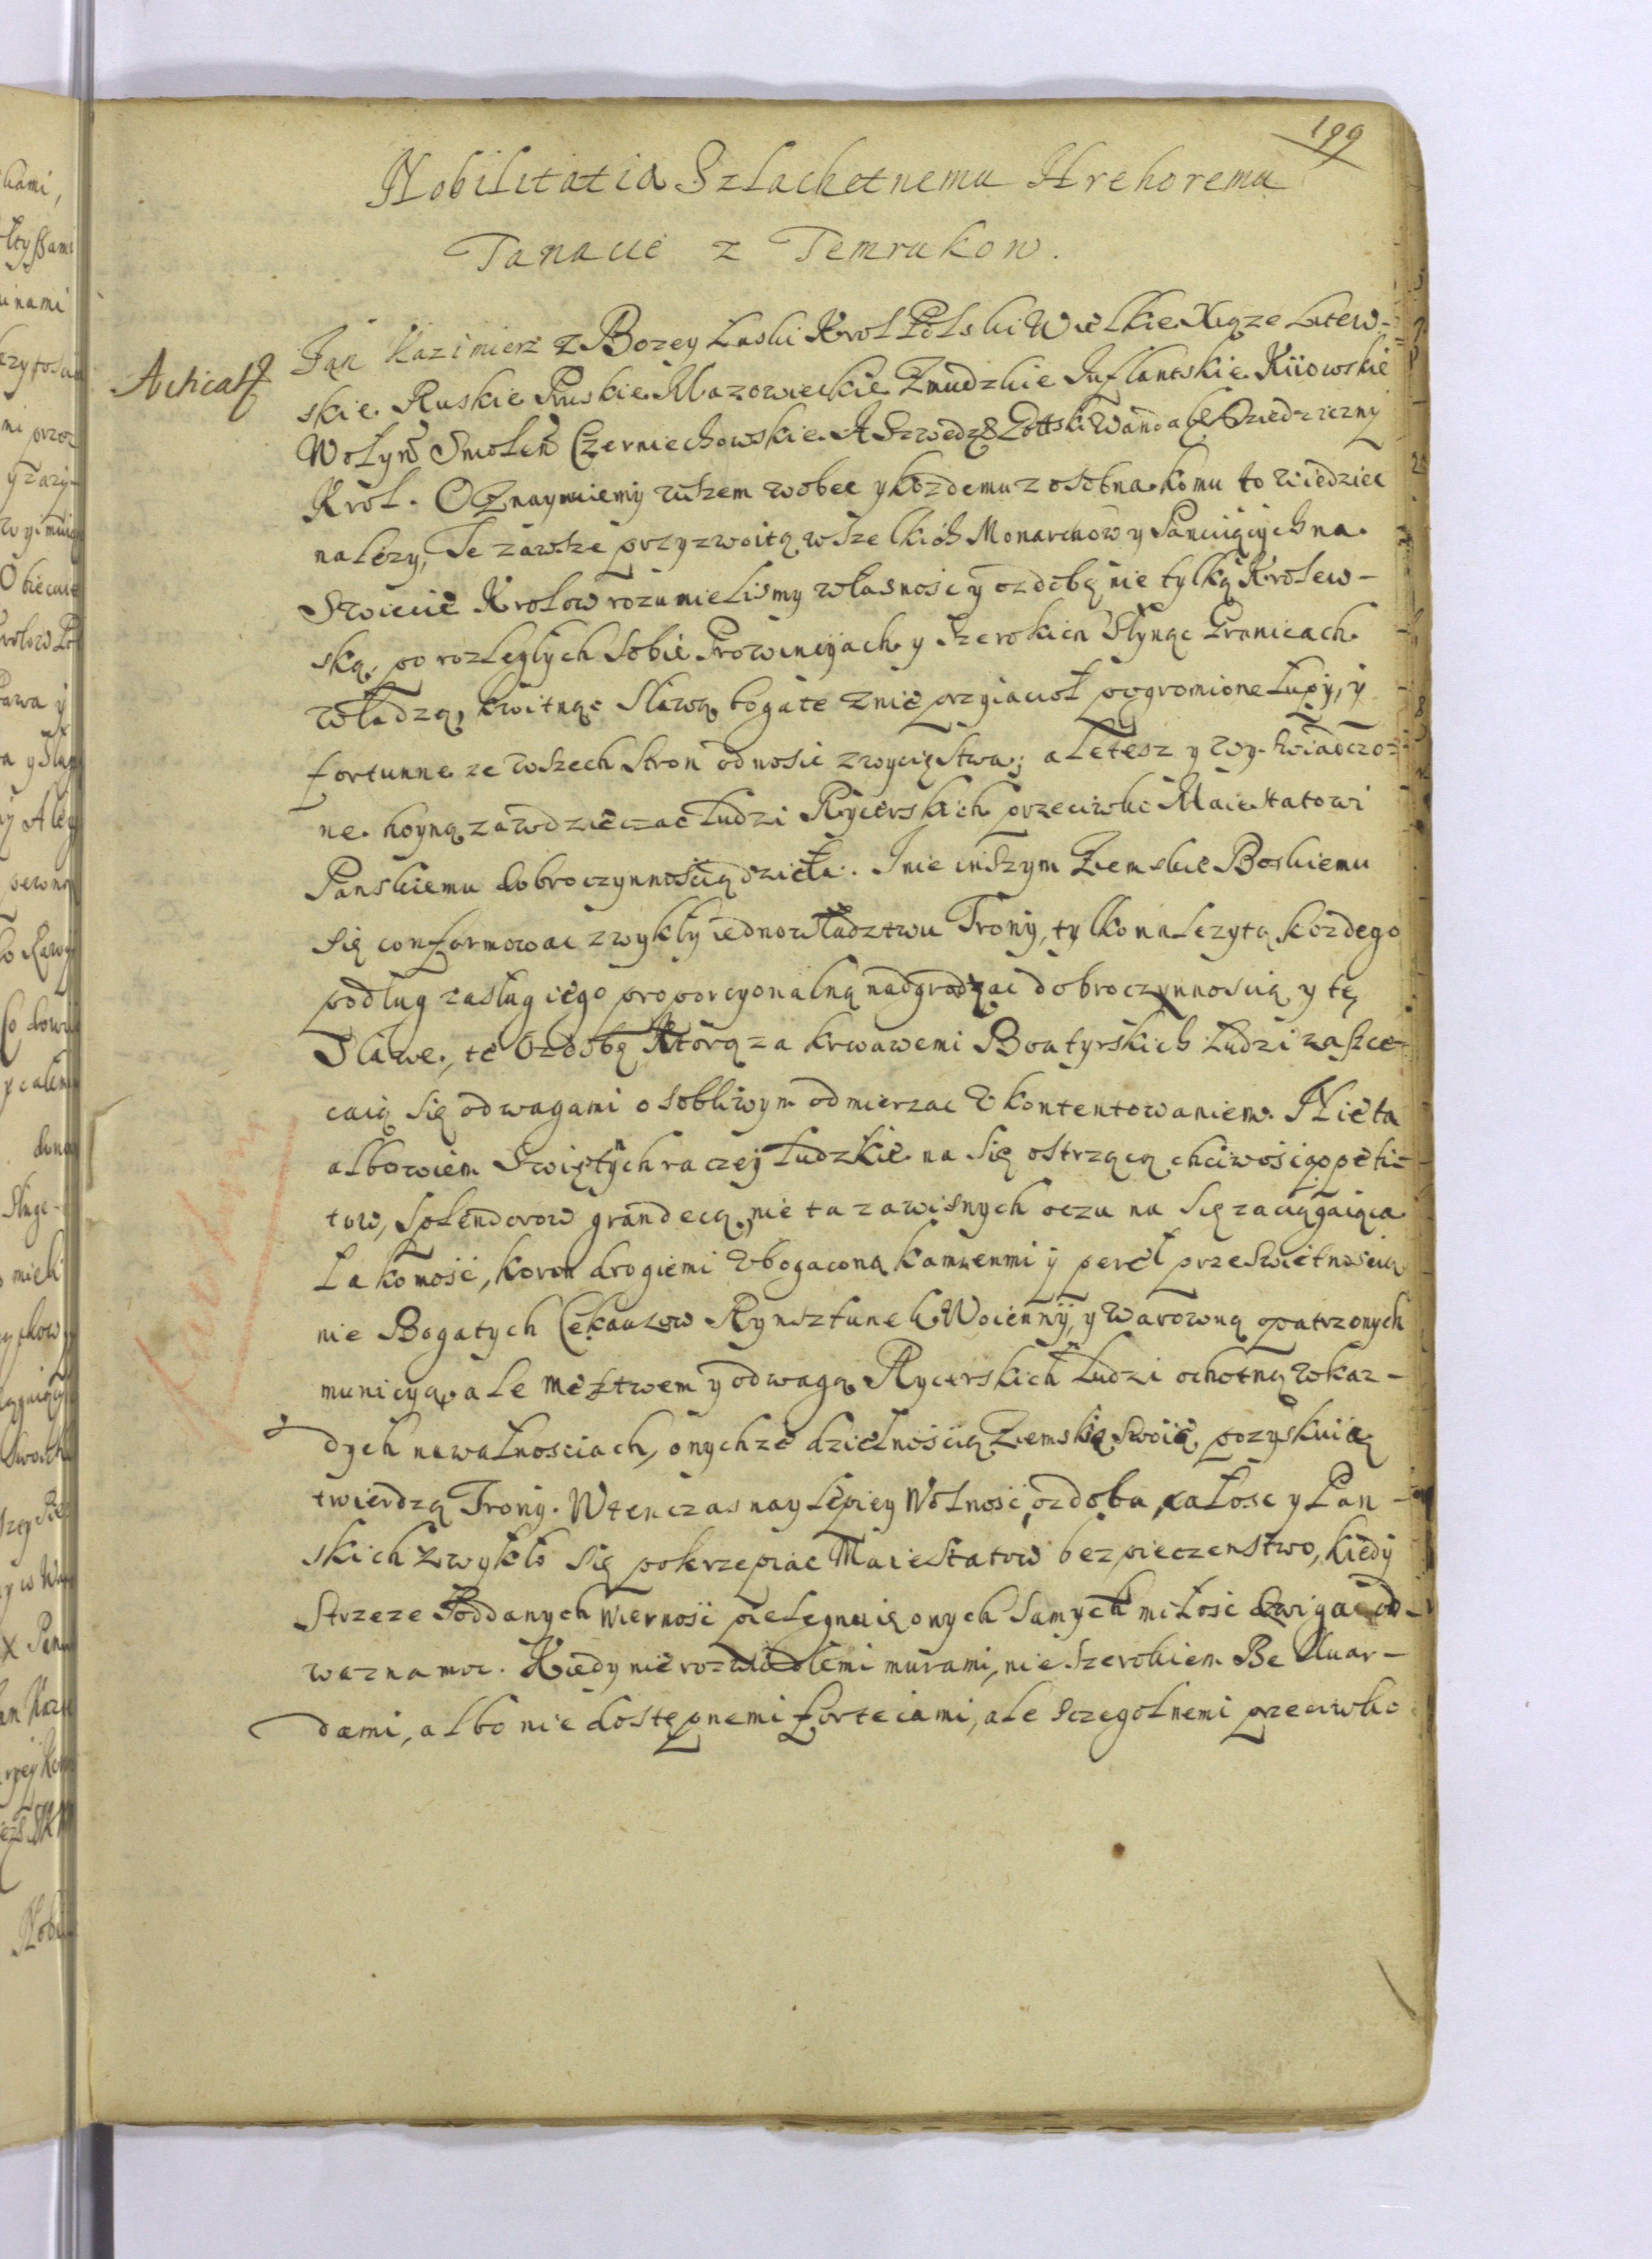 199
Nobilitatia Szlachetnemu Hrehoremu
Tanacie z Temrukow.
Acticatz
Jan Kazimierz z Bozey Laski Krol Polski Wielkie Xiąze Litew-
skie Ruskie Pruskie Mazowieckie Zmudzkie Inflantskie Kiiowskie
Wołyn Smolen Czerniechowskie A Szwedz Gottski Wandal Dziedziczny
Krol. Oznaymiemy wszem wobec y kozdemu z osobna komu to wiedziec
nalezy, Ze zawsze przyzwoitą wszelkich Monarchow y Panuiących na
Swiecie Krolow rozumielismy własnosc y ozdobę nie tylką Krolew-
ską, po rozległych sobie Prowincyach y szerokich słynąc Granicach
władzą, kwitnąc sławą bogate z nie przyiacioł pogromione łupy, y
fortunne ze wszech stron odnosic zwycięstwa; ale tesz y wyswiadczo-
ne hoyną zawdzięczac ludzi Rycerskich przeciwko Maiestatowi
Panskiemu dobroczynnoscią dzieła. I nie inszym Ziemskie Boskiemu
się conformowac zwykły iednowładztwu Trony, tylko nalezytą kozdego
podług zasług iego proporcyonalną nadgradzac dobroczynnoscią y tę
Sławe, te Ozdobę Ktorą za krwawemi Boatyrskich Ludzi zaszce-
caią się odwagami osobliwym odmierzac vkontentowaniem. Nie ta
albowiem Swiętnych raczey ludzkie na się ostrzącą chciwoscią ppetit-
tow, splendorow grandecą, nie ta zawisnych oczu na się zaciągaiąca
Lakomosc, koron drogiemi vbogacona kamienmi y pereł przeswietnoscią
nie Bogatych Cekauzow Rynsztunek Woienny, y warowną opatrzonych
municyą, ale męztwem y odwagą Rycerskich ludzi ochotną w kaz-
dych nawałnosciach, onychze dzielnoscią Ziemskie swoie pozyskuią
twierdzą Trony. Wten czas naylepiey Wolnosc, ozdoba, całosc y Pan-
skich zwykło się pokrzepiac Maiestatow bezpieczenstwo, kiedy
Strzeze Poddanych wiernosc pielęgnuią onych samych miłosc dzwiga od-
wazna moc. Kiedy nie rozwiodłemi murami, nie szerokiem Belluar-
dami, albo nie dostępnemi fortecami, ale sczegolnemi przeciwko